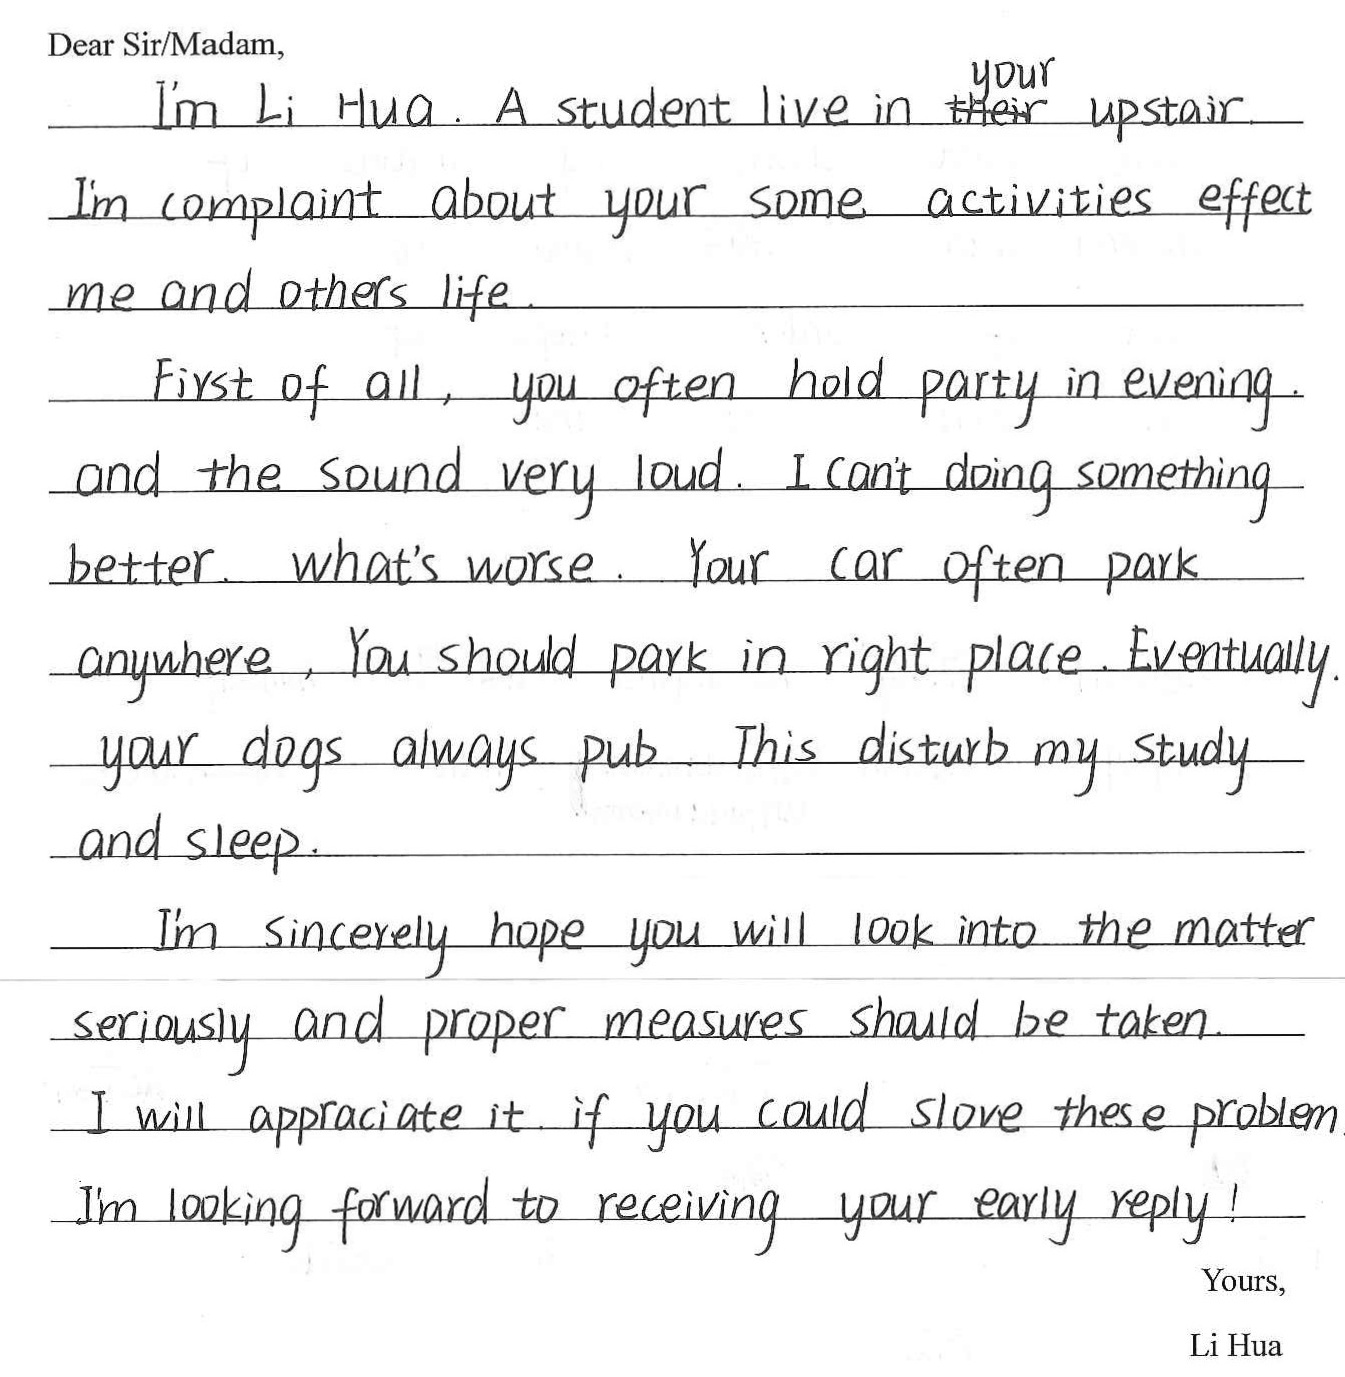 Dear Sir/Madam,
your
I'm Li Hua. A student live in their upstair.
I'm complaint about your some activities effect
me and others life.
First of all, you often hold party in evening.
and the sound very loud. I can't doing something
better. what's worse. Your car often park
anywhere, You should park in right place. Eventually.
your dogs always pub. This disturb my study
and sleep.
I'm sincerely hope you will look into the matter
seriously and proper measures should be taken.
I will appraciate it if you could slove these problem.
I'm looking forward to receiving your early reply!
Yours,
Li Hua